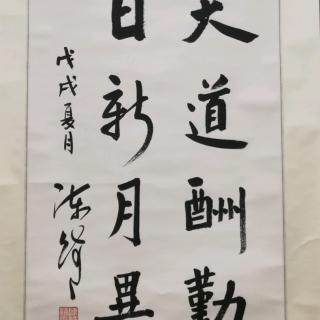 天道酬勤
日新月異
戊戌夏月